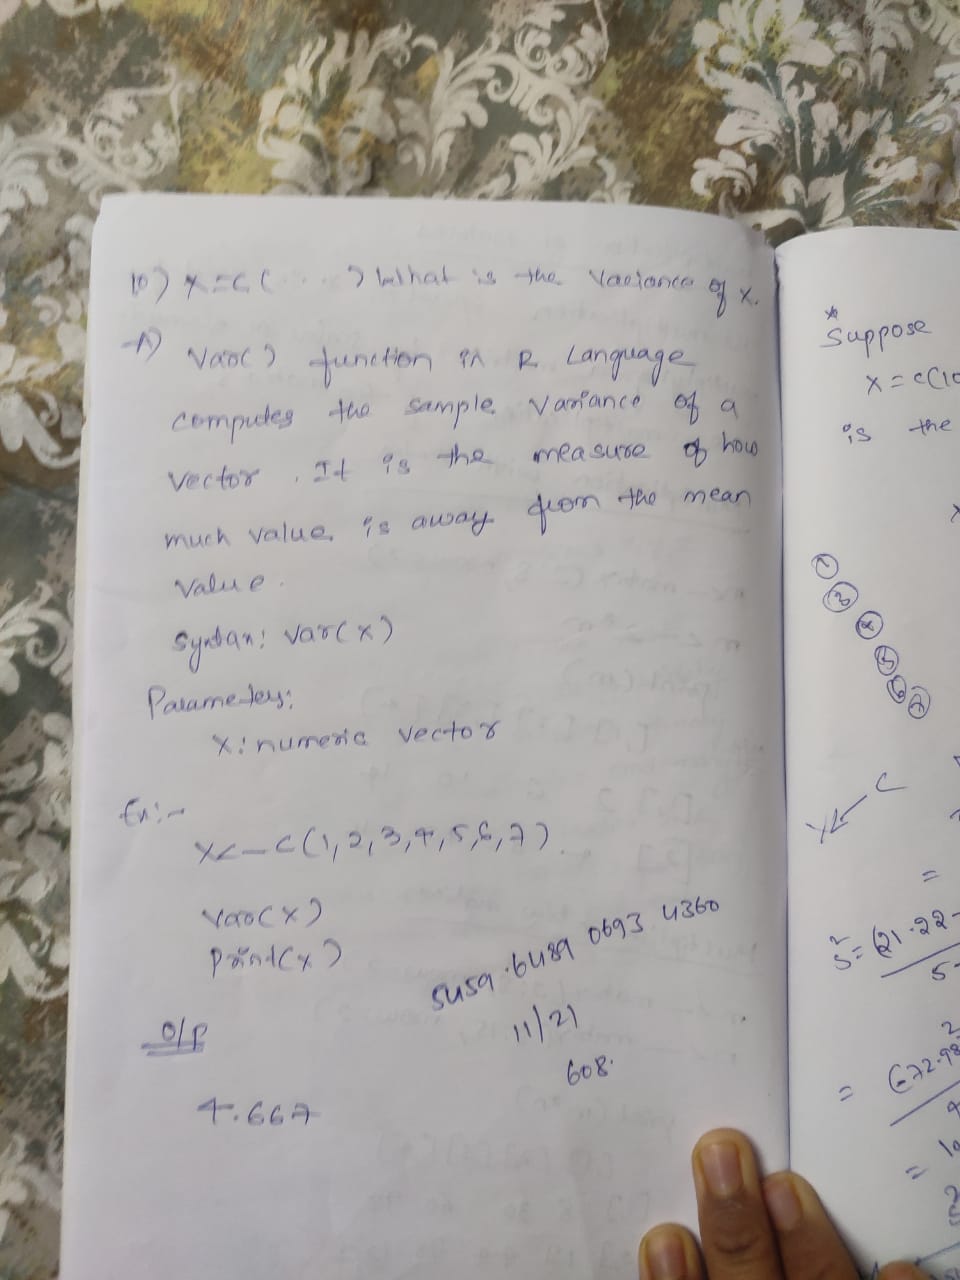 10) X=C(....) What is the variance of x.
A) Var() function in R Language
computes the sample variance of a
vector. It is the measure of how
much value is away from the mean
value.
Syntax: Var(x)
Parameters:
X: numeric vector
Ex:-
X<-C(1,2,3,4,5,6,7).
Var(x)
Print(x)
5459.6489 0693 4360
11/21
608.
O/P
4.667
*
Suppose
X=C(10
is the
X
2
3
4
5
6
7
C
=
S²=(21.22-
5-
=
(-72.98
=